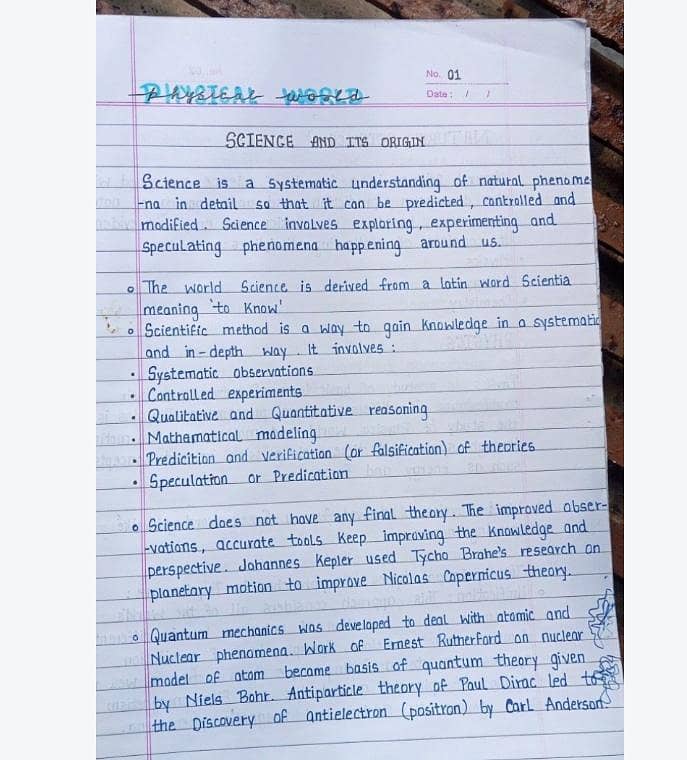 No. 01
PHYSICAL WORLD
Date: / /
SCIENCE AND ITS ORIGIN
Science is a systematic understanding of natural phenome
-na in detail so that it can be predicted, controlled and
modified. Science involves exploring, experimenting and
speculating phenomena happening around us.
The world Science is derived from a latin word Scientia
meaning 'to Know'
Scientific method is a way to gain Knowledge in a systematic
and in-depth way. It involves :
• Systematic observations
• Controlled experiments
• Qualitative and Quantitative reasoning
• Mathematical modeling
• Predicition and verification (or falsification) of theories
• Speculation or Predication
Science does not have any final theory. The improved obser-
-vations, accurate tools Keep improving the Knowledge and
perspective. Johannes Kepler used Tycho Brahe's research on
planetary motion to improve Nicolas Copernicus theory.
Quantum mechanics was developed to deal with atomic and
Nuclear phenomena. Work of Ernest Rutherford on nuclear
model of atom became basis of quantum theory given
by Niels Bohr. Antiparticle theory of Paul Dirac led to
the Discovery of antielectron (positron) by Carl Anderson